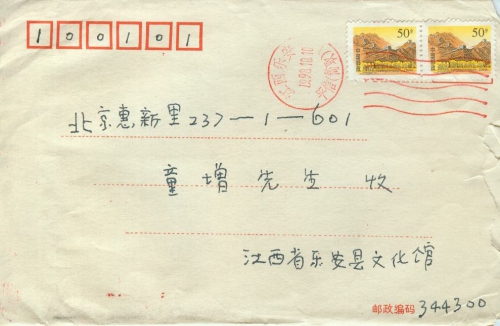 100101
50分
50分
北京惠新里237—1—601
童增先生 收
江西省乐安县文化馆
邮政编码 344300